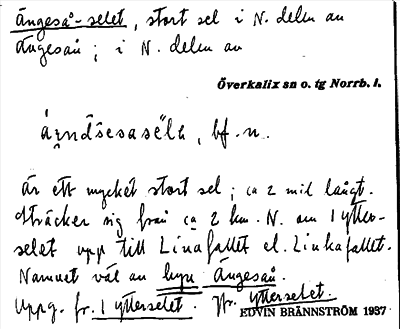 Ängeså-selet, stort sel i N. delen av
Ängesån; i N. delen av
Överkalix sn o. tg Norrb. l.
bf. n.
är ett mycket stort sel; ca 2 mil långt.
sträcker sig från ca 2 km. N. om 1 ytter-
selet upp till Linafallet el. Linkafallet.
Namnet väl av Ängesån.
Uppg. fr. 1 ytterselet. Jfr. ytterselet.
EDVIN BRÄNNSTRÖM 1937